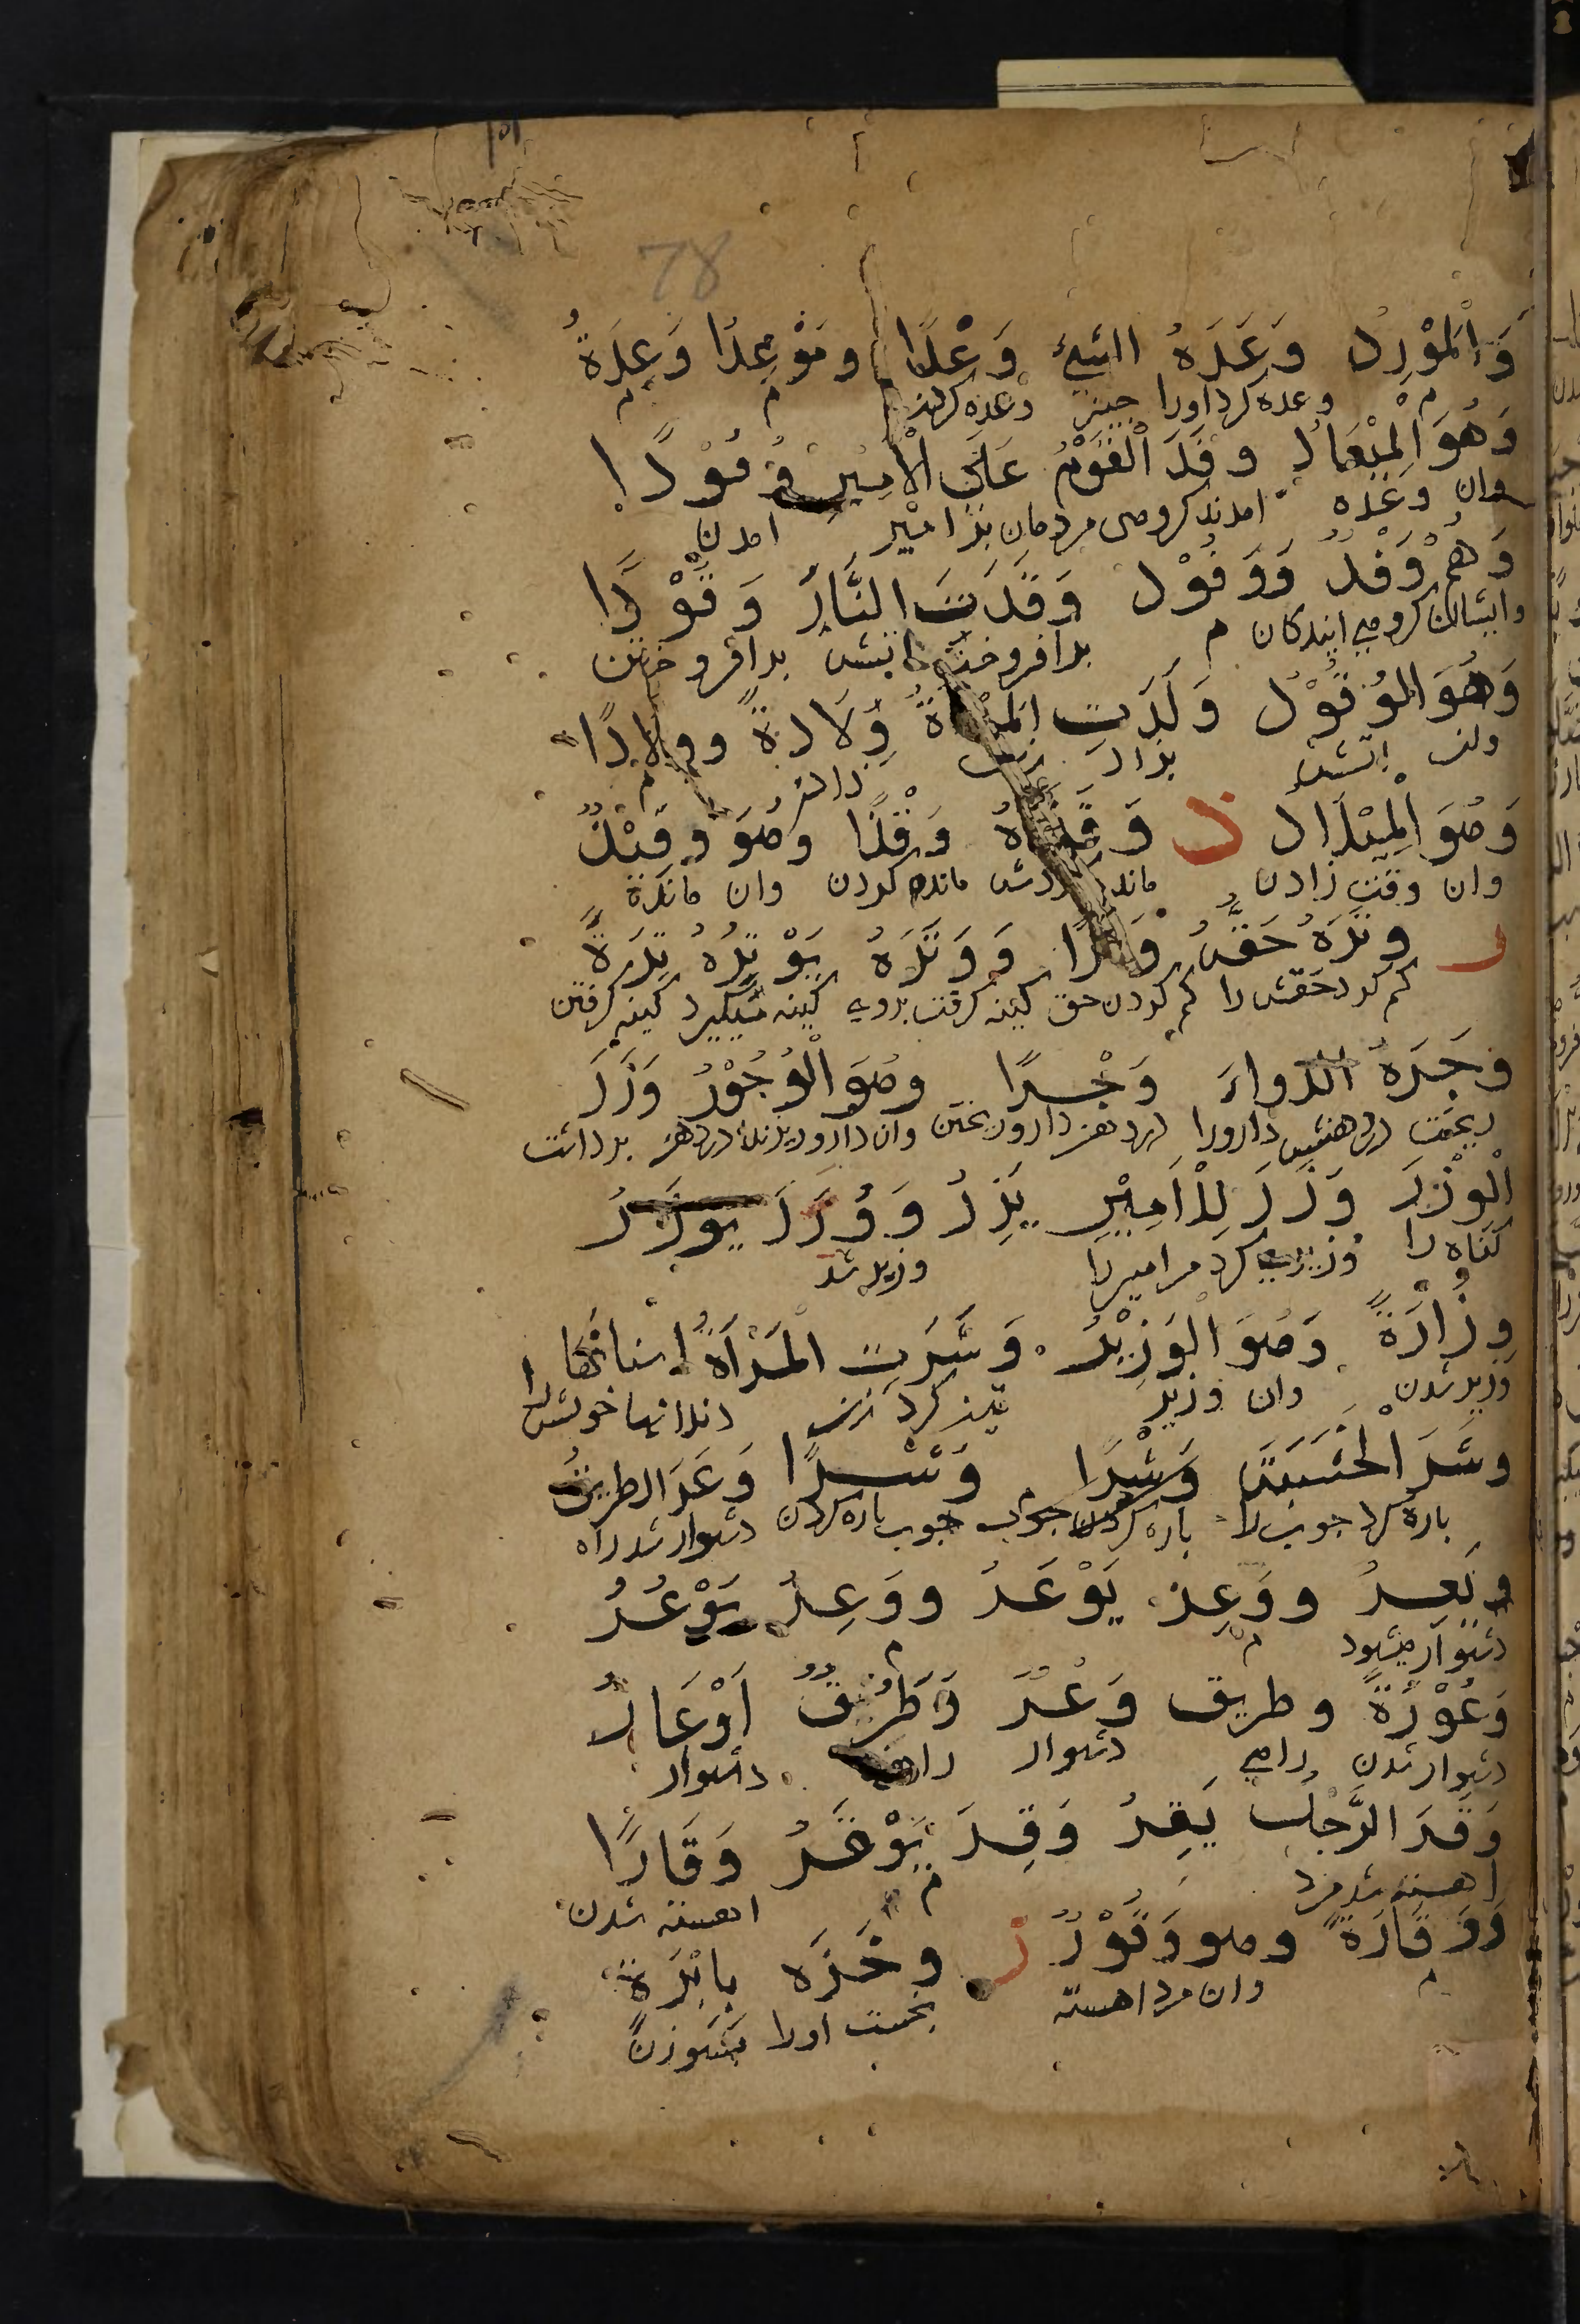 78
وَالْمَوْرِدُ وَعَدَهُ الشيئَ وَعْدًا ومَوْعِدًا وَعِدَةً
م وعده کرد اورا چیز وعده کردن م م
وَهُوَ الْمِيْعَادُ وفَدَ الْقَوْمُ عَلَى الْأمِيْرِ وُفُوْدًا
وان وعده امدند کروهی مردمان بذ امیر امدن
وَهُمْ وَفْدٌ وَوَفُوْد وَقَدَتِ النَّارُ وَقُوْدًا
وایشان کروهی ایندکان م برافروخت اتش برافروختن
وَهُوَ الوُقُوْد وَلَدَتِ الْمَرْأةُ وِلَادةً وولادًا
وان اتش بزاد زن زادن م
وَهُوَ الْمِيْلَاد ذ وَقَذَهُ وَقْذًا وهُوَ وَقِيْذٌ
وان وقت زادن مانده کردش مانده کردن وان مانده
ر وتَرَهُ حَقَّهُ وَتْرًا وَوَتَرَهُ يَوْتِرُهُ تِرَةً
کم کرد حقش را کم کردن حق کینه کرفت بروی کینه میکیرد کینه کرفتن
وجَرَهُ الدواءَ وَجْرًا وهُوَ الْوُجُوْرُ وَزَرَ
ریخت در دهنش دارورا در دهن دارو ریختن وان دارو ریزنده در دهن برداشت
الْوِزْرَ وَزَرَ لِلْأمِيْرِ يَزِرُ وَوُزِرَ يوزَرُ
کناه را وزیری کرد مر امیررا وزیر شد
وِزُارَةً وَهُوَ الْوَزِيْرُ وَشَرَتِ الْمَرْأةُ اسنانَها
وزیر شدن وان وزیر تیز کرد زن دندانها خویش را
وشَرَ الْخَشَبَةَ وَشْرًا وَشْرًا وَعَرَ الطريقُ
باره کرد جوب را باره کردن جوب جوب باره کردن دشوار شد راه
ويَعِرُ ووَعِرَ يَوْعَرُ ووَعِرُ يَوْعُرُ
دشوار میشود م م
وَعُوْرَةً وطريق وَعْرٌ وَطَرِيْقٌ اَوْعَارٌ
دشوار شدن راهی دشوار راه دشوار
وَقَرَ الرَّجُلُ يَقِرُ وَقِرَ يَوْقَرُ وَقَارًا
اهسته شد مرد م اهسته شدن
وَوَقَارَةً وهو وَقُوْرٌ ز وخَزَه بِابْرَةٍ
م وان مرد اهسته بخست اورا بسوزن